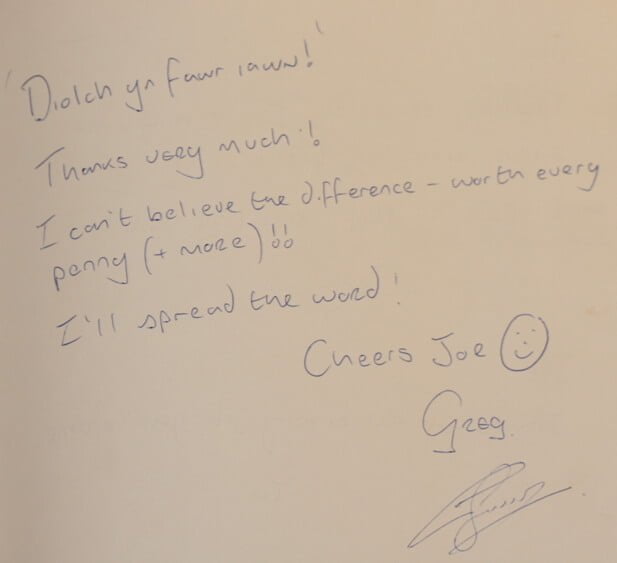 'Diolch yn fawr iawn!'
Thanks very much!
I can't believe the difference - worth every
penny (+ more)!!
I'll spread the word!
Cheers Joe
Greg.